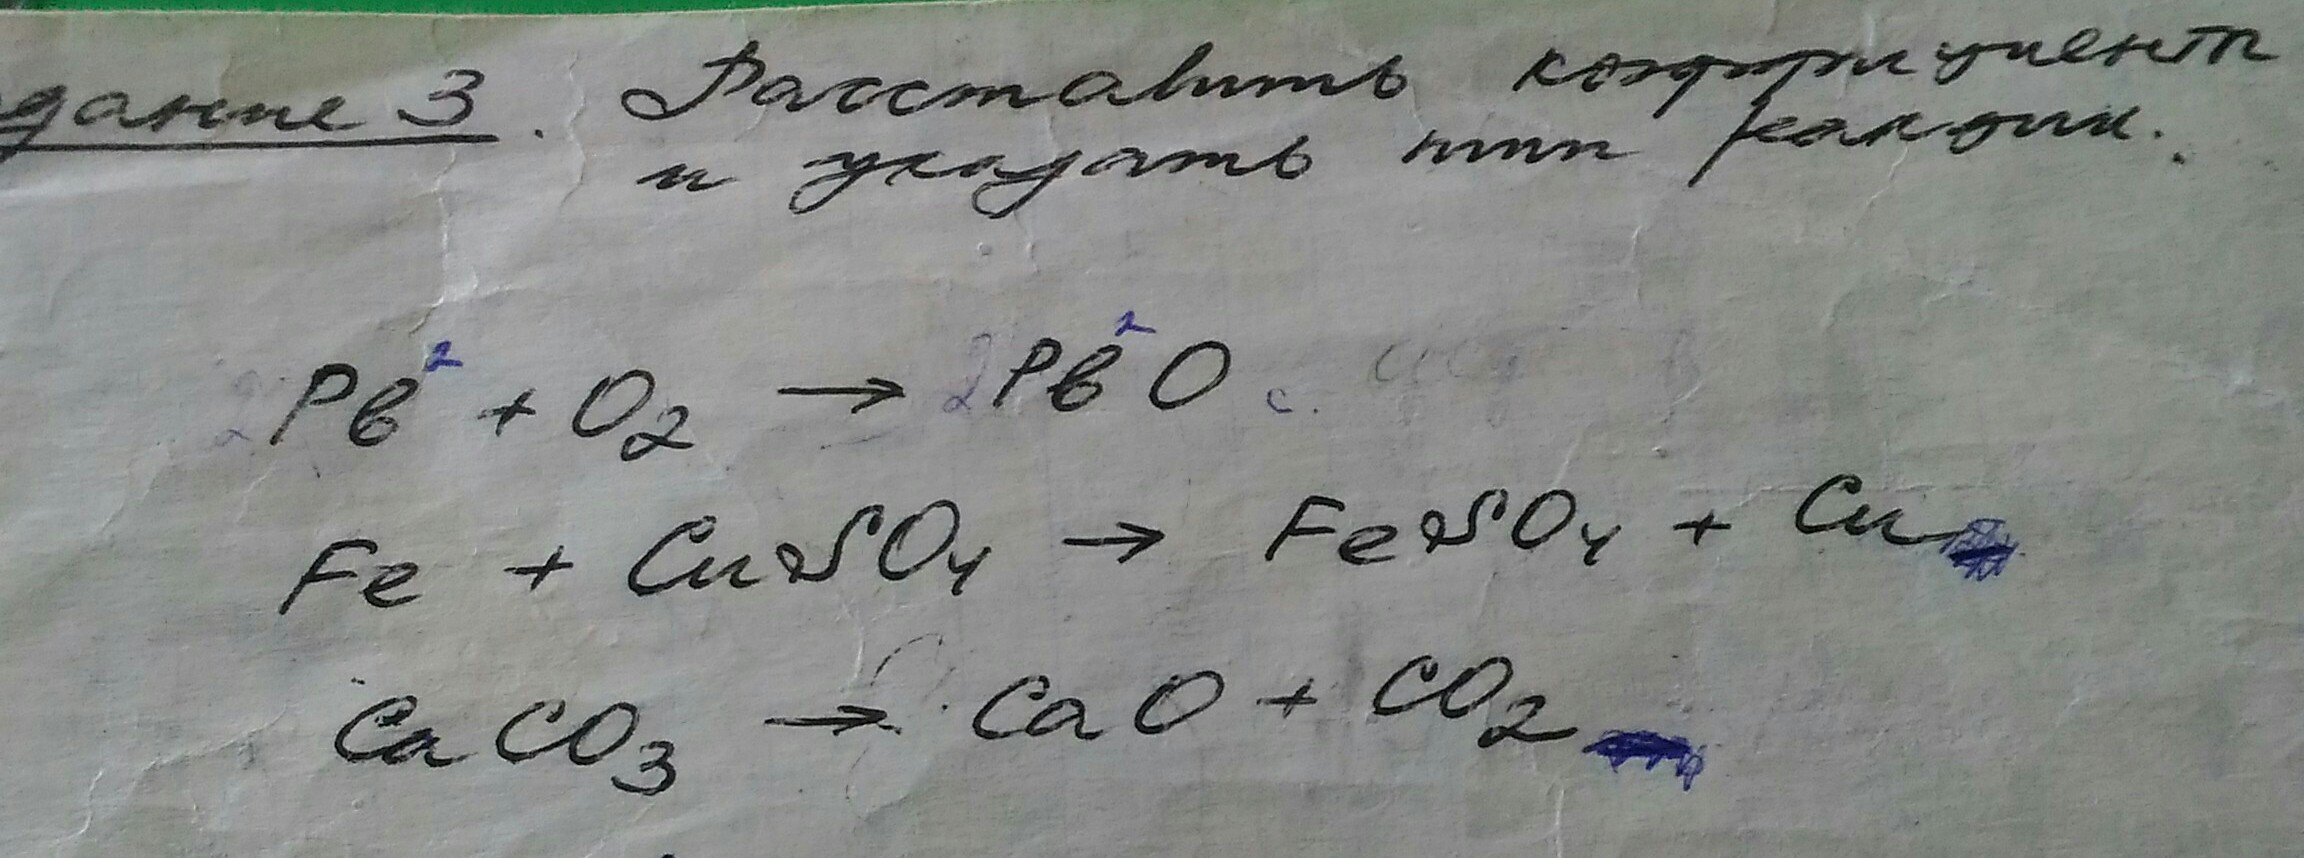 дание 3. Расставить коэффициенты
и указать тип реакции.
2 Pb² + O₂ → 2 Pb²O с.
Fe + CuSO₄ → FeSO₄ + Cu
CaCO₃ → CaO + CO₂